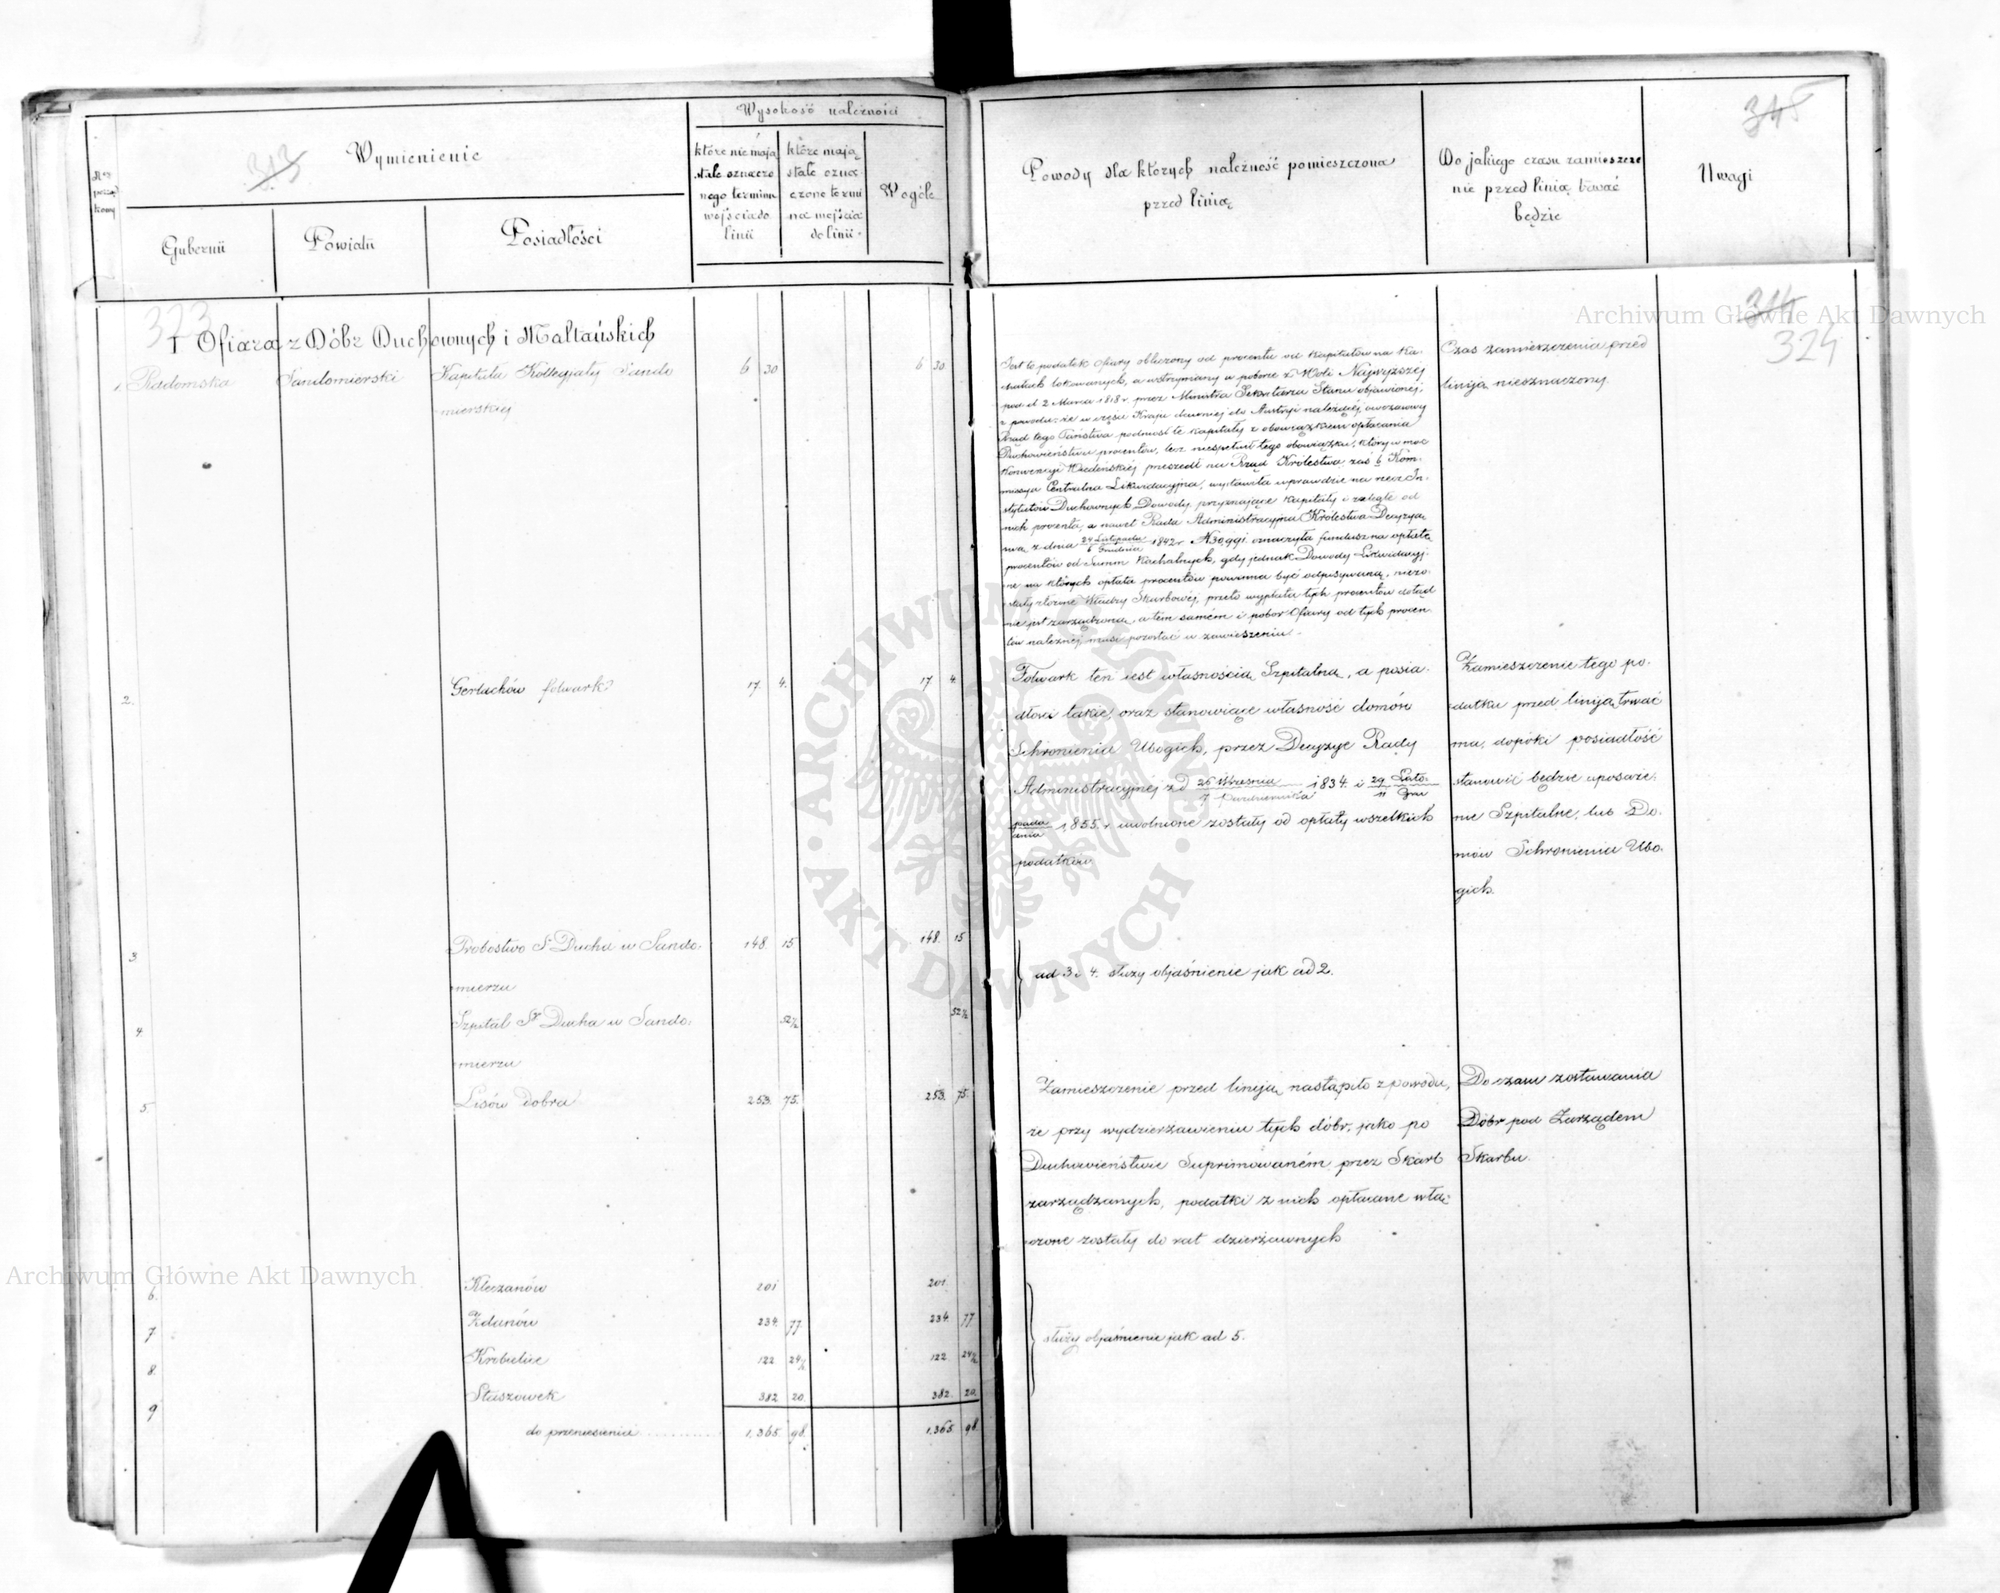 Wysokość należności
Wymienienie
313
Ner porząd kowy
Gubernii
Powiatu
Posiadłości
które nie mają
stale oznaczo
nego terminu
wejścia do
linii
które mają
stale ozna
czone termi
na wejścia
do linii.
Wogóle
323
I Ofiara z Dóbr Duchownych i Maltańskich
1. Radomska Sandomierski Kapituła Kollegiaty Sando 6 30 6 30
mierskiej
2. Gerlachów folwark 17. 4. 17. 4.
3. Probostwo St Ducha w Sando- 148. 15 148. 15
mierzu
4. Szpital St Ducha w Sando- 52½ 52½
mierzu
5. Lisów dobra 253. 75. 253. 75.
6. Kleczanów 201 201.
7. Zdanów 234. 77. 234. 77
8. Krobielice 122 24½ 122 24½
9 Staszówek 382 20. 382. 20.
do przeniesienia 1,365. 98. 1,365 98
Powody dla których należność pomieszczona
przed linią
Do jakiego czasu zamieszcze
nie przed linią trwać
będzie
Uwagi
345
314
324
Jest to podatek ofiary obliczony od procentu od kapitałów na Ka-
hałach lokowanych, a wstrzymany w poborze z Woli Najwyższej
pod d. 2 Marca 1818 r. przez Ministra Sekretarza Stanu objawionej,
z powodu: że w części Kraju dawniej do Austryi należącej, owczasowy
Rząd tego Państwa podniósł te kapitały z obowiązkiem opłacania
Duchowieństwu procentów, lecz niespełnił tego obowiązku, który w moc
Konwencyi Wiedeńskiej przeszedł na Rząd Królestwa zaś b. Kom-
missya Centralna Likwidacyjna, wystawiła wprawdzie na rzecz In-
stytutów Duchownych Dowody, przyznające kapitały i zaległe od
nich procenta, a nawet Rada Administracyjna Królestwa Decyzyą
swą z dnia 24 Listopada / 6 Grudnia 1842 r. N 30,991. oznaczyła fundusz na opłatę
procentów od Summ Kachalnych, gdy jednak Dowody Likwidacyj-
ne na których opłata procentów powinna być odpisywaną, niezo-
stały złożone Władzy Skarbowej, przeto wypłata tych procentów dotąd
nie jest zarządzona, a tem samém i pobor Ofiary od tych procen-
tów należnej, musi pozostać w zawieszeniu.
Czas zamieszczenia przed
liniją nieoznaczony.
Folwark ten jest własnością Szpitalną, a posia-
dłości takie, oraz stanowiące własność domów
Schronienia Ubogich, przez Decyzye Rady
Administracyjnej z d 26 Września / 7 Października 1834. i 29 Listo- / 11 Gru
pada / dnia 1,855. r uwolnione zostały od opłaty wszelkich
podatków.
Zamieszczenie tego po-
datku przed liniją trwać
ma, dopóki posiadłość
stanowić będzie uposaże-
nie Szpitalne, lub Do-
mów Schronienia Ubo-
gich.
ad 3 i 4. służy objaśnienie jak ad 2.
Zamieszczenie przed liniją nastąpiło z powodu,
że przy wydzierżawieniu tych dóbr, jako po
Duchowieństwie Suprimowaném przez Skarb
zarządzanych, podatki z nich opłacane włą-
czone zostały do rat dzierżawnych
Do czasu zostawania
Dóbr pod Zarządem
Skarbu.
służy objaśnienie jak ad 5.
Archiwum Główne Akt Dawnych
Archiwum Główne Akt Dawnych
ARCHIWUM GŁÓWNE · AKT DAWNYCH ·